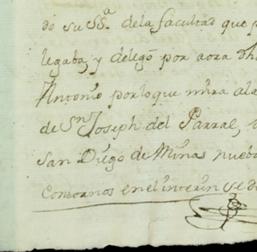 do su Sª. dela facultad que p
legaba, y delegò por aora dh
Antonio por lo que mira ala
de Sn. Joseph del Parral,
San Diego de Minas nueba
Contornos en el interin se d